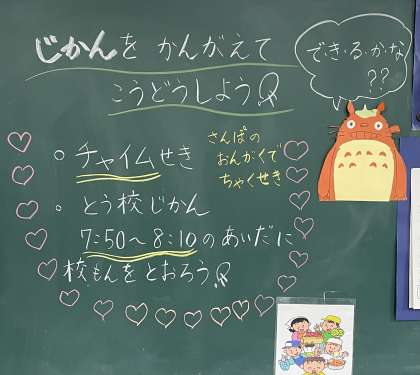 じかんを かんがえて
こうどうしよう!
で・き・る・か・な
??
○ チャイムせき
さんぽの
おんがくで
ちゃくせき
・ とう校じかん
7:50〜8:10のあいだに
校もんをとおろう!